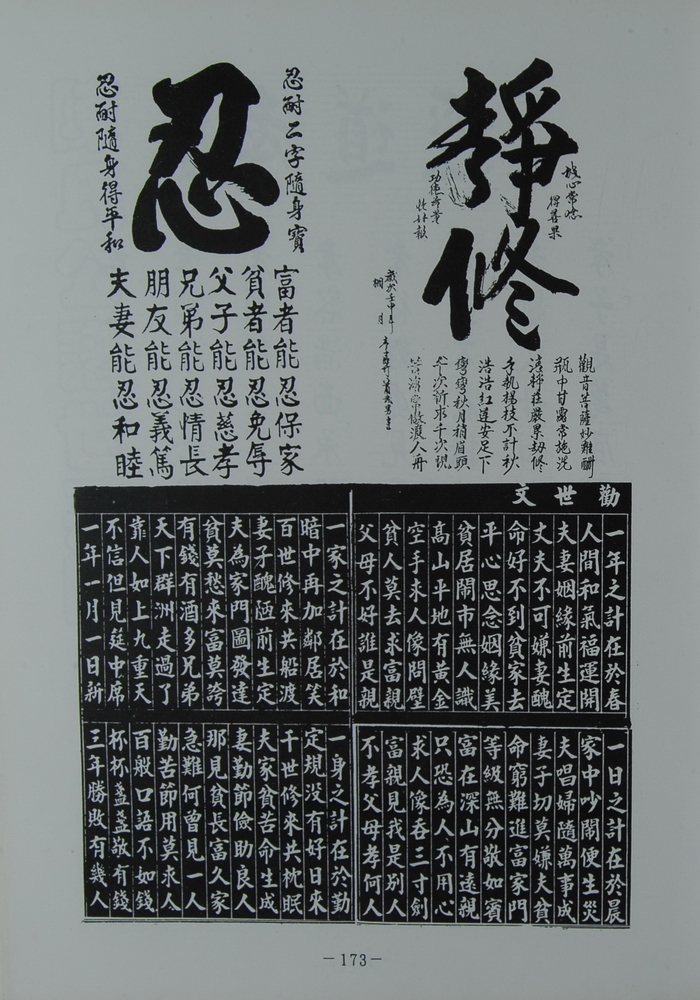 靜修
放心常唸
得善果
觀音菩薩妙難酬
瓶中甘露常施洗
清靜莊嚴累劫修
手執楊枝不計秋
浩浩紅蓮安足下
彎彎秋月稍眉頭
千次祈求千次現
苦海常做渡人舟
忍耐二字隨身寶
忍
忍耐隨身得平和
富者能忍保家
貧者能忍免辱
父子能忍慈孝
兄弟能忍情長
朋友能忍義篤
夫妻能忍和睦
勸世文
一年之計在於春
人間和氣福運開
夫妻姻緣前生定
丈夫不可嫌妻醜
命好不到貧家去
平心思念姻緣美
貧居鬧市無人識
高山平地有黃金
空手求人像問壁
貧人莫去求富親
父母不好誰是親
一日之計在於晨
家中吵鬧便生災
夫唱婦隨萬事成
妻子切莫嫌夫貧
命窮難進富家門
等級無分敬如賓
富在深山有遠親
只恐為人不用心
求人像吞三寸劍
富親見我是別人
不孝父母孝何人
一家之計在於和
暗中再加鄰居笑
百世修來共船渡
妻子醜陋前生定
夫為家門圖發達
貧莫愁來富莫誇
有錢有酒多兄弟
天下群洲走過了
靠人如上九重天
不信但見筵中席
一年一月一日新
一身之計在於勤
定規没有好日來
千世修來共枕眠
夫家貧苦命生成
妻勤節儉助良人
那見貧長富久家
急難何曾見一人
勤苦節用莫求人
百般口語不如錢
杯杯盞盞敬有錢
三年勝敗有幾人
－173－